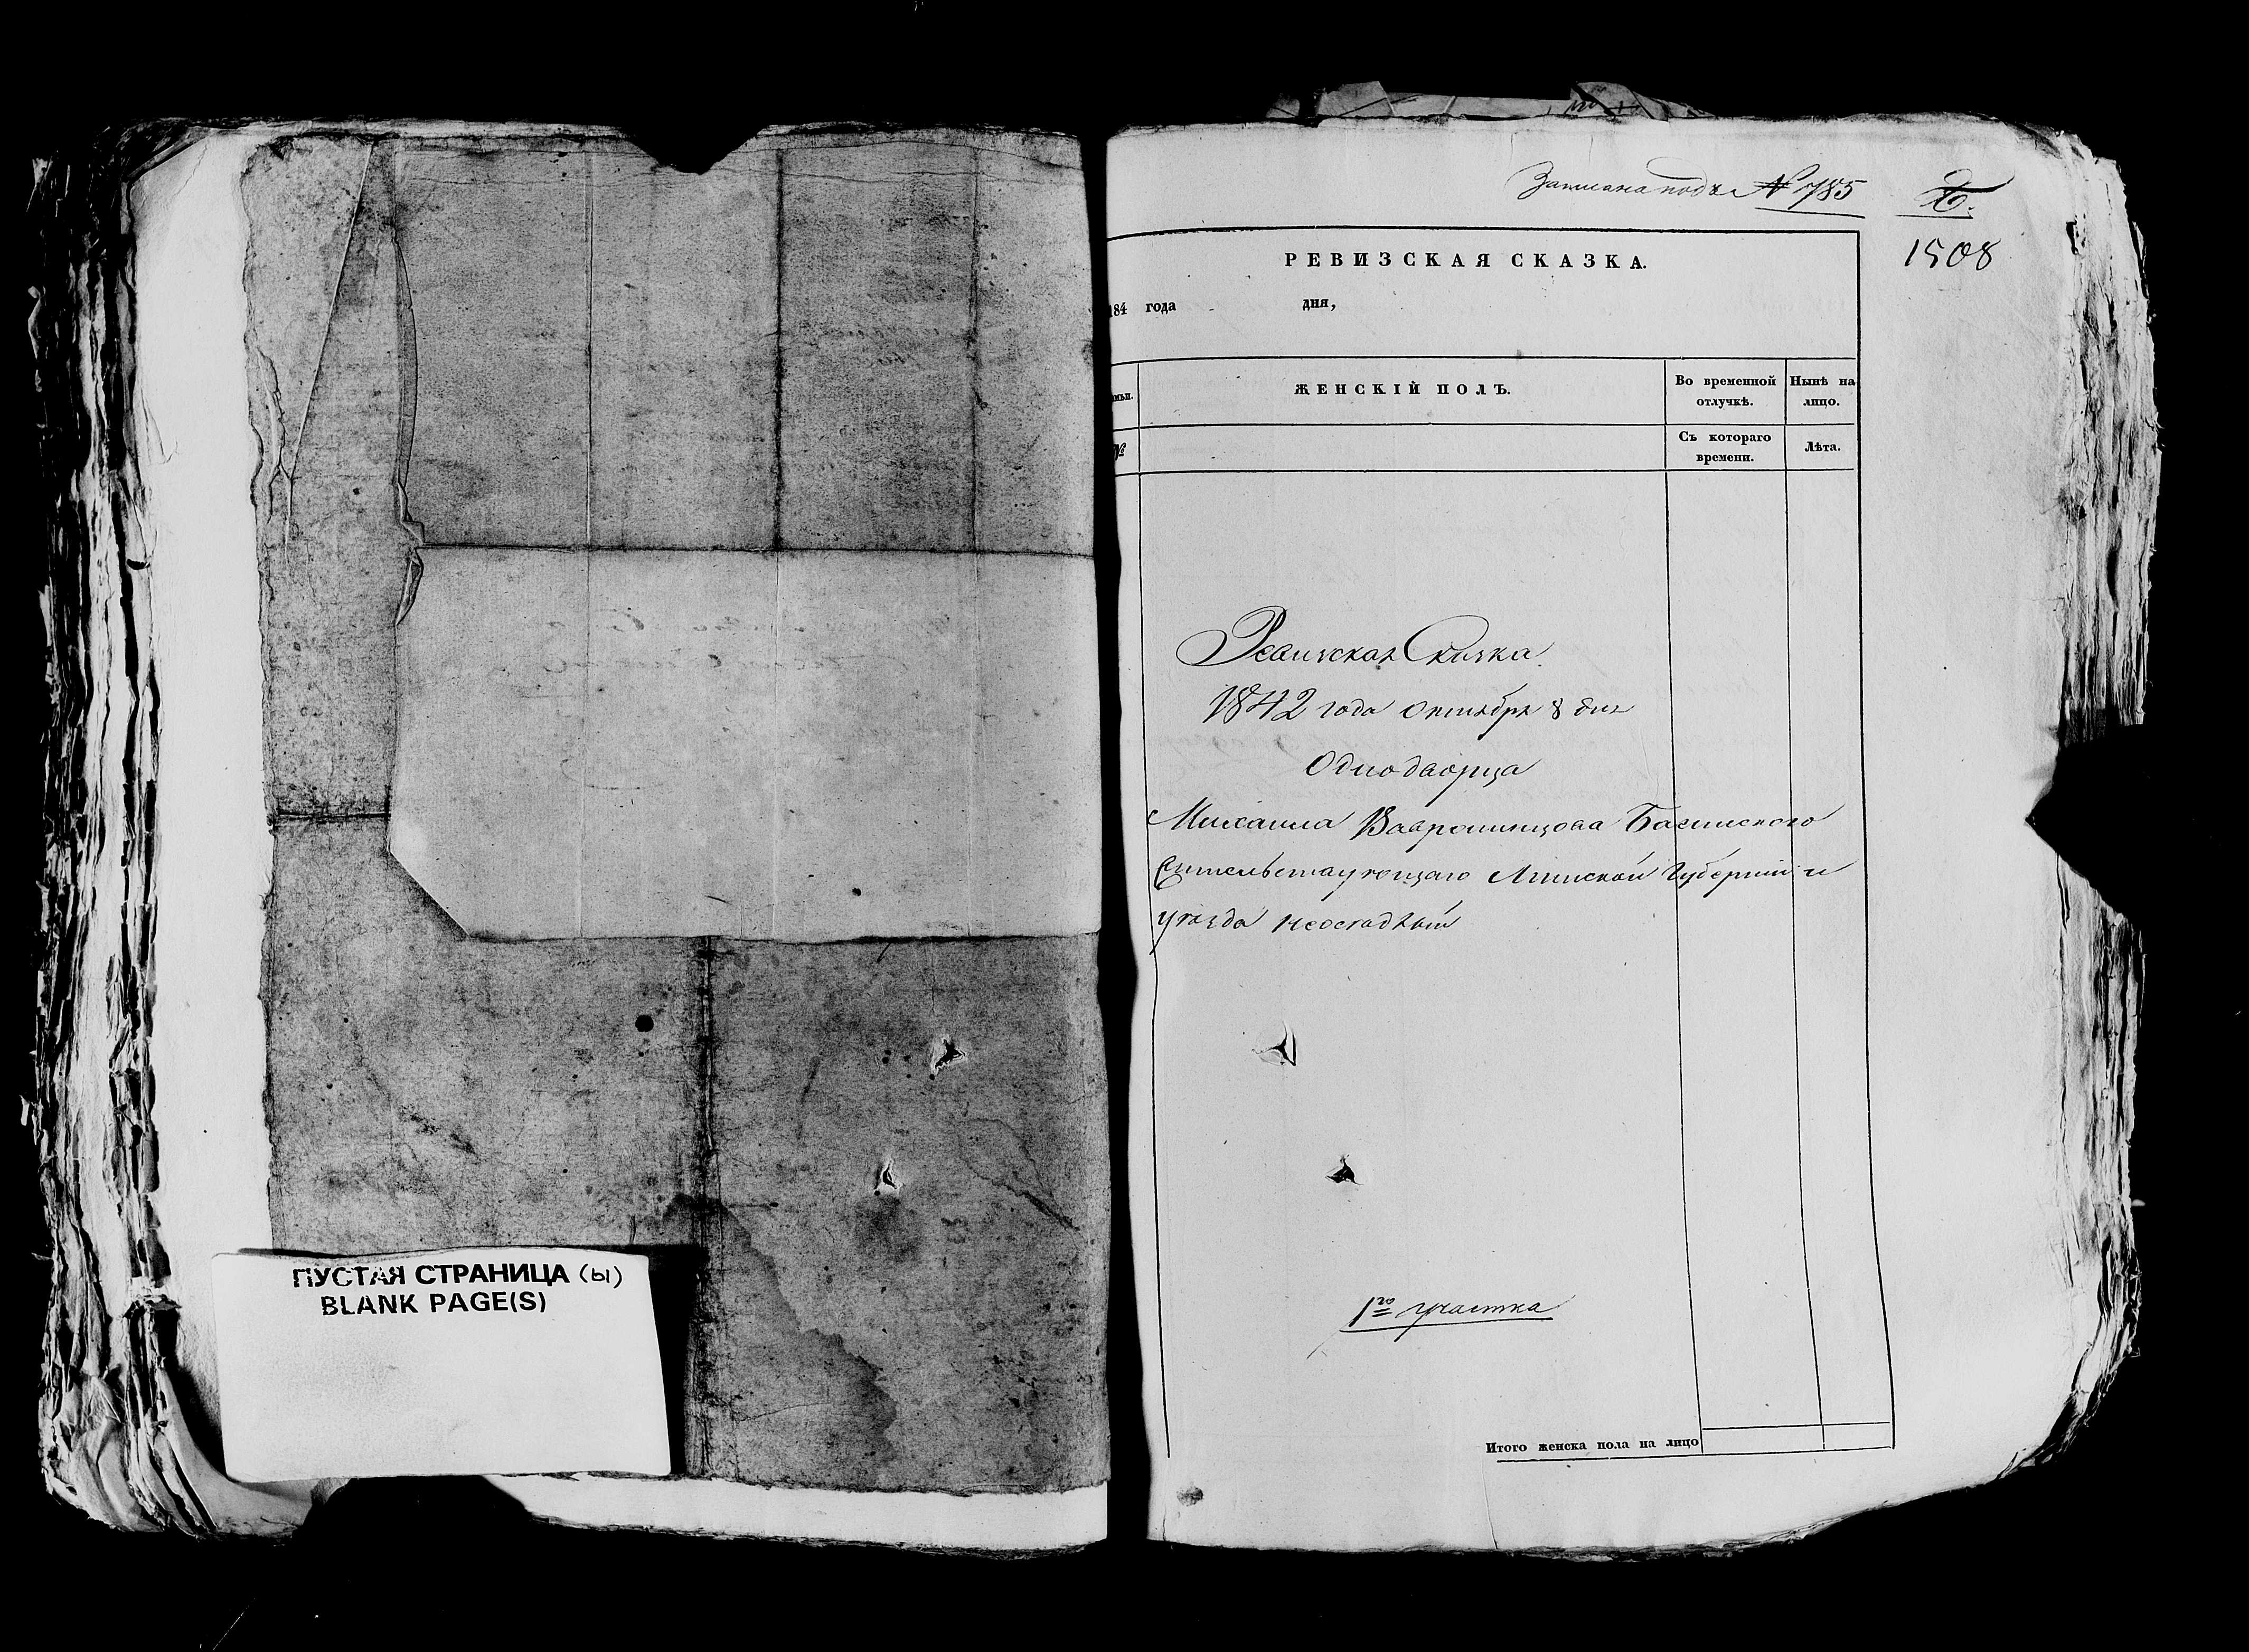 Записана подъ № 785
Б.
1508
РЕВИЗСКАЯ СКАЗКА.
184 года дня,
ЖЕНСКІЙ ПОЛЪ.
Во временной отлучкѣ.
Нынѣ на лицо.
№
Съ котораго времени.
Лѣта.
Ревизская Сказка
1842 года октября 8 дня
Однодворца
Михаила Вавринцова
жительствующаго Минской Губерніи и
уѣзда неоседлый
1го участка
Итого женска пола на лицо
ПУСТАЯ СТРАНИЦА (Ы)
BLANK PAGE(S)